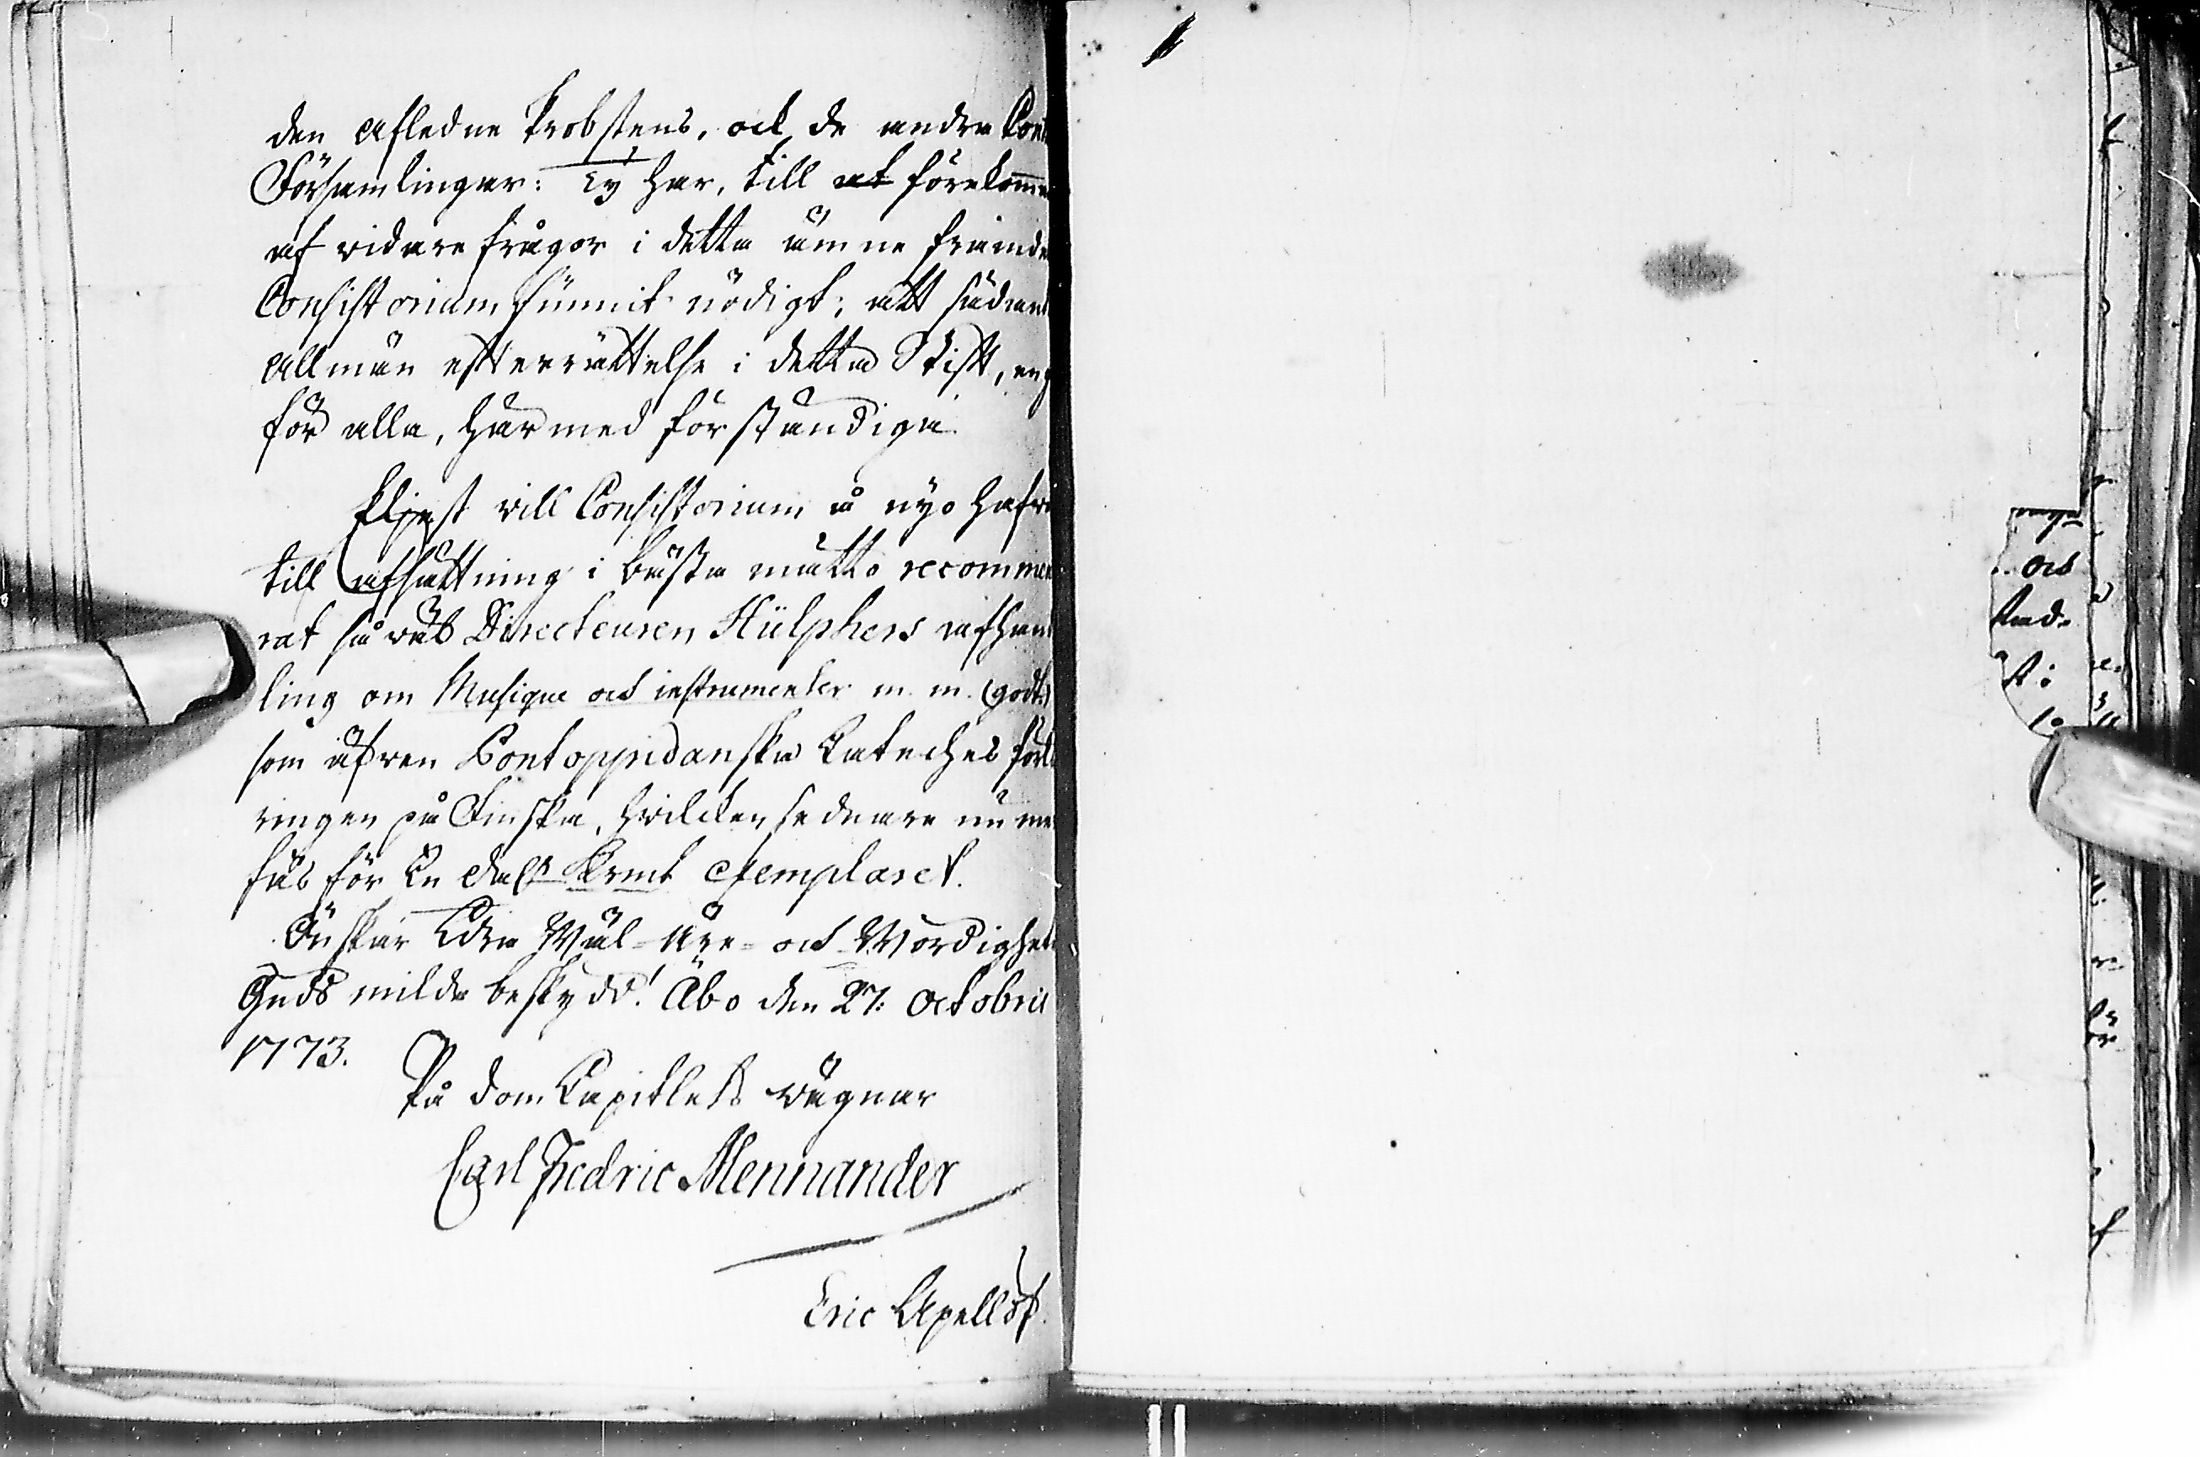 den aflednе Probstens, ock de andra
Församlingar: Ty har, till at förekomma
af vidare frågor i detta ämne
Consistorium funnit nödigt, att
allmän efterrättelse i detta Stift, en
för alla, härmed förständiga.
Eljest vill Consistorium å nyo hafva
till afsättning i bästa matto recommen
rat så väl Directeuren Hülphers afhand
ling om Musique och instrumenter m. m.
som äfven Pontoppidanska Catechesförkla
ringen på Finska, hvilcken sednare nu
fås för En dal Kpmt exemplaret.
Önskar Edra Wäl-Äre- och Wördighet
Guds milda beskydd! Åbo den 27: Octobris
1773.
På Dom Capitlets vägnar
Carl Fredric Mennander
Eric Apellöf
och